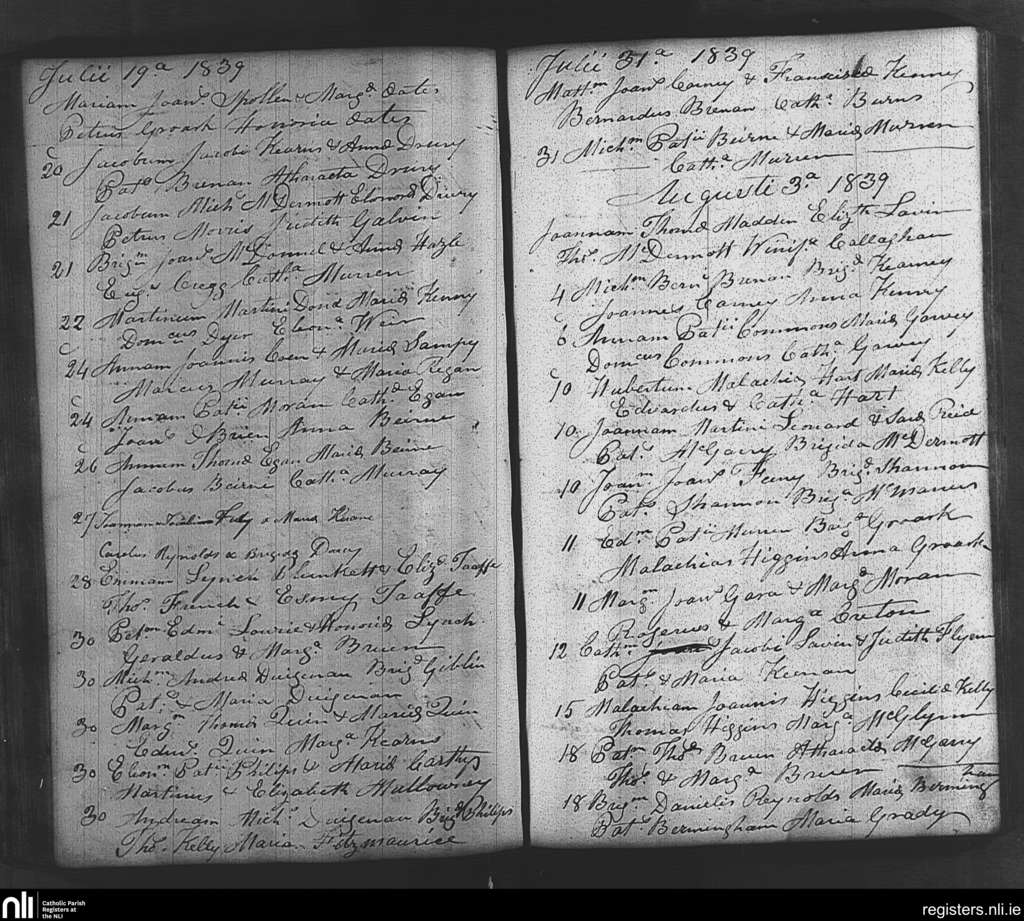 Julii 19a 1839
Mariam Joans. Spollen & Margd. Oates
Petrus Groark Honoria Oates
20 Jacobum Jacobi Kearns & Anna Drury
Pats. Brenan Atharacta Drury
21 Jacobum Michs. McDermott Elonord Drury
Petrus Morris Judith Galvin
21 Brigm. Joans. McDonnel & Anna
Eugs. Cregg Catha. Murren
22 Martinum Martini Dond Maria Kenny
Domcus Dyer Eleona. Weir
24 Annam Joannis Coen & Maria Sampy
Marcus Murray & Maria Regan
24 Annam Patii Moran Cathd. Egan
Joans. OBrien Anna Beirne
26 Annam Thomd Egan Maria Beirne
Jacobus Beirne Catha. Murray
27 & Maria Keane
Carolus Reynolds & Brigida Darcy
28 Emmam Plunkett & Elizd. Taaffe
Thos. French & Esmy Taaffe
30 Petm. Edmi. Lowrie & Honoria Lynch
Geraldus & Marga. Bruen
30 Michm. Andrea Duigenan Brigd. Giblin
Pats. & Maria Duigenan
30 Margm. Thoma Quin & Maria Quin
Edms. Quin Marga. Kearns
30 Eleonm. Patii Philips & Maria Carthy
Martinus & Elizabeth Mullowney
30 Andream Michs. Duigenan Brigd. Philips
Thos. Kelly Maria Fitzmaurice
Julii 31a 1839
Mattm. Joans. Carney & Francisca Kenny
Bernardus Brenan Catha. Burns
31 Michm. Patii Beirne & Maria Murren
Catha. Murren
Augusti 3a 1839
Joannam Thoma Madden Elizth. Lavin
Thos. McDermott Winifa. Callaghan
4 Michm. Berni. Brenan Brigd. Kearney
Joannes Carney Anna Kenny
6 Annam Patii Commons Maria Garvey
Domcus Commons Catha. Garvey
10 Hubertum Malachia Hart Maria Kelly
Edvardus & Catha. Hart
10 Joannam Martini Leonard & Sara Reid
Pats. McGarry Brigida McDermott
10 Joanm. Joans. Feeny Brigd. Shannon
Pats. Shannon Briga. McManus
11 Edm. Patii Murren Brigd. Groark
Malachias Higgins Anna Groark
11 Margm. Joans. Gara & Margd. Moran
Rogerus & Marga. Creton
12 Cathm. Jacobi Lavin & Judith Flynn
Pats. & Maria Keenan
15 Malachiam Joannis Higgins Cecilia Kelly
Thomas Higgins Marga. McGlynn
18 Patm. Thos. Bruen Atharacta McGarry
Thos. & Marga. Bruen
18 Brigm. Danielis Reynolds Maria Berming
ham
Pats. Bermingham Maria Grady
nli
Catholic Parish
Registers at
the NLI
registers.nli.ie